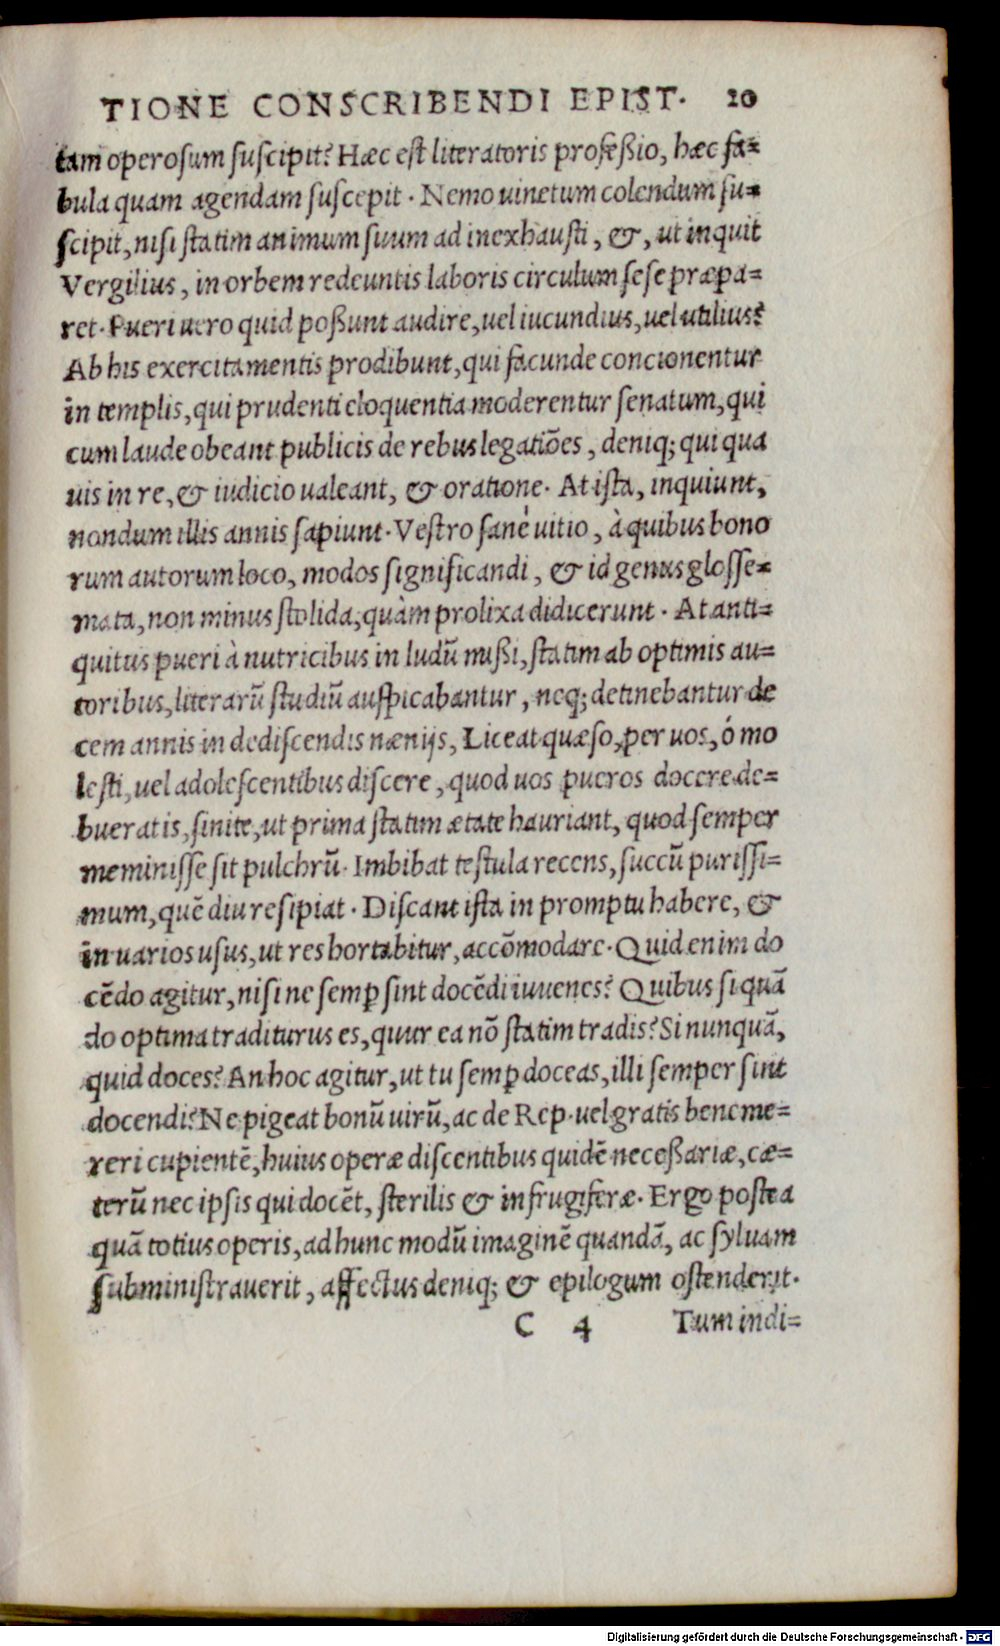 TIONE CONSCRIBENDI EPIST. 20
tam operosum suscipit? Hæc est literatoris profeßio, hæc fa=
bula quam agendam suscepit. Nemo uinetum colendum su=
scipit, nisi statim animum suum ad inexhausti, &, ut inquit
Vergilius, in orbem redeuntis laboris circulum sese præpa=
ret. Pueri uero quid poßunt audire, uel iucundius, uel utilius?
Ab his exercitamentis prodibunt, qui facunde concionentur
in templis, qui prudenti eloquentia moderentur senatum, qui
cum laude obeant publicis de rebus legatiões, deniq; qui qua
uis in re, & iudicio ualeant, & oratione. At ista, inquiunt,
nondum illis annis sapiunt. Vestro sanè uitio, à quibus bono
rum autorum loco, modos significandi, & id genus glosse=
mata, non minus stolida, quàm prolixa didicerunt. At anti=
quitus pueri à nutricibus in ludũ mißi, statim ab optimis au=
toribus, literarũ studiũ auspicabantur, neq; detinebantur de
cem annis in dediscendis nænijs, Liceat quæso, per uos, ó mo
lesti, uel adolescentibus discere, quod uos pueros docere de=
bueratis, sinite, ut prima statim ætate hauriant, quod semper
meminisse sit pulchrũ. Imbibat testula recens, succũ purissi=
mum, quẽ diu resipiat. Discant ista in promptu habere, &
in uarios usus, ut res hortabitur, accõmodare. Quid enim do
cẽdo agitur, nisi ne semꝑ sint docẽdi iuuenes? Quibus si quã
do optima traditurus es, quur ea nõ statim tradis? Si nunquã,
quid doces? An hoc agitur, ut tu semꝑ doceas, illi semper sint
docendi? Ne pigeat bonũ uirũ, ac de Rep. uel gratis bene me=
reri cupientẽ, huius operæ discentibus quidẽ neceßariæ, cæ=
terũ nec ipsis qui docẽt, sterilis & infrugiferæ. Ergo postea
quã totius operis, ad hunc modũ imaginẽ quandã, ac syluam
subministrauerit, affectus deniq; & epilogum ostenderit.
C 4 Tum indi=
Digitalisierung gefördert durch die Deutsche Forschungsgemeinschaft - DFG